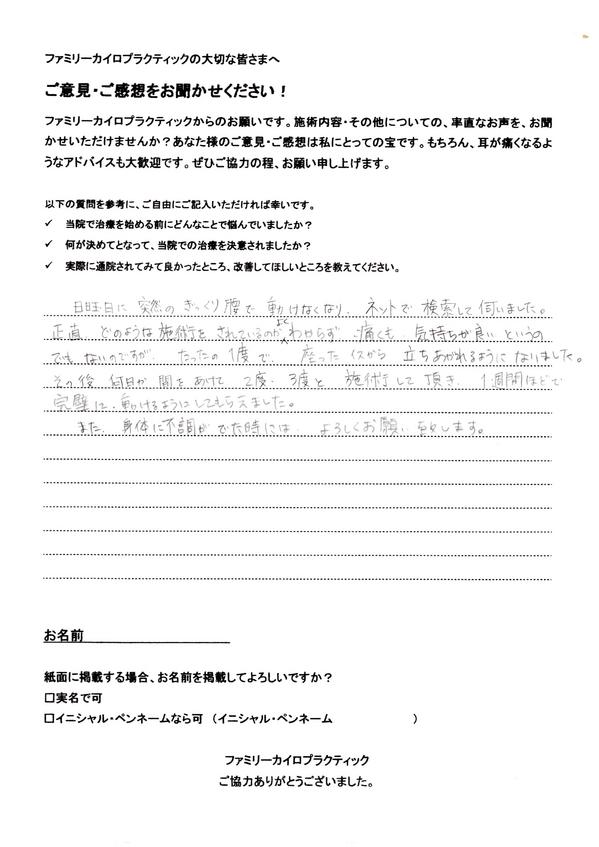 ファミリーカイロプラクティックの大切な皆さまへ
ご意見・ご感想をお聞かせください！
ファミリーカイロプラクティックからのお願いです。施術内容・その他についての、率直なお声を、お聞
かせいただけませんか？あなた様のご意見・ご感想は私にとっての宝です。もちろん、耳が痛くなるよ
うなアドバイスも大歓迎です。ぜひご協力の程、お願い申し上げます。
以下の質問を参考に、ご自由にご記入いただければ幸いです。
✓ 当院で治療を始める前にどんなことで悩んでいましたか？
✓ 何が決めてとなって、当院での治療を決意されましたか？
✓ 実際に通院されてみて良かったところ、改善してほしいところを教えてください。
日曜日に 突然の ぎっくり腰で 動けなくなり、ネットで 検索して 伺いました。
正直 どのような 施術を されているのか よくわからず 痛くも 気持ちが良い というの
でも ないのですが、 たったの 1度で、 座った イスから 立ちあがれるように なりました。
その後、何日か 間を あけて 2度・3度と 施術して頂き、1週間ほどで
完璧に、動けるようにしてもらえました。
また、身体に不調が でた時には、よろしくお願い致します。
お名前
紙面に掲載する場合、お名前を掲載してよろしいですか？
□実名で可
□イニシャル・ペンネームなら可 （イニシャル・ペンネーム ）
ファミリーカイロプラクティック
ご協力ありがとうございました。